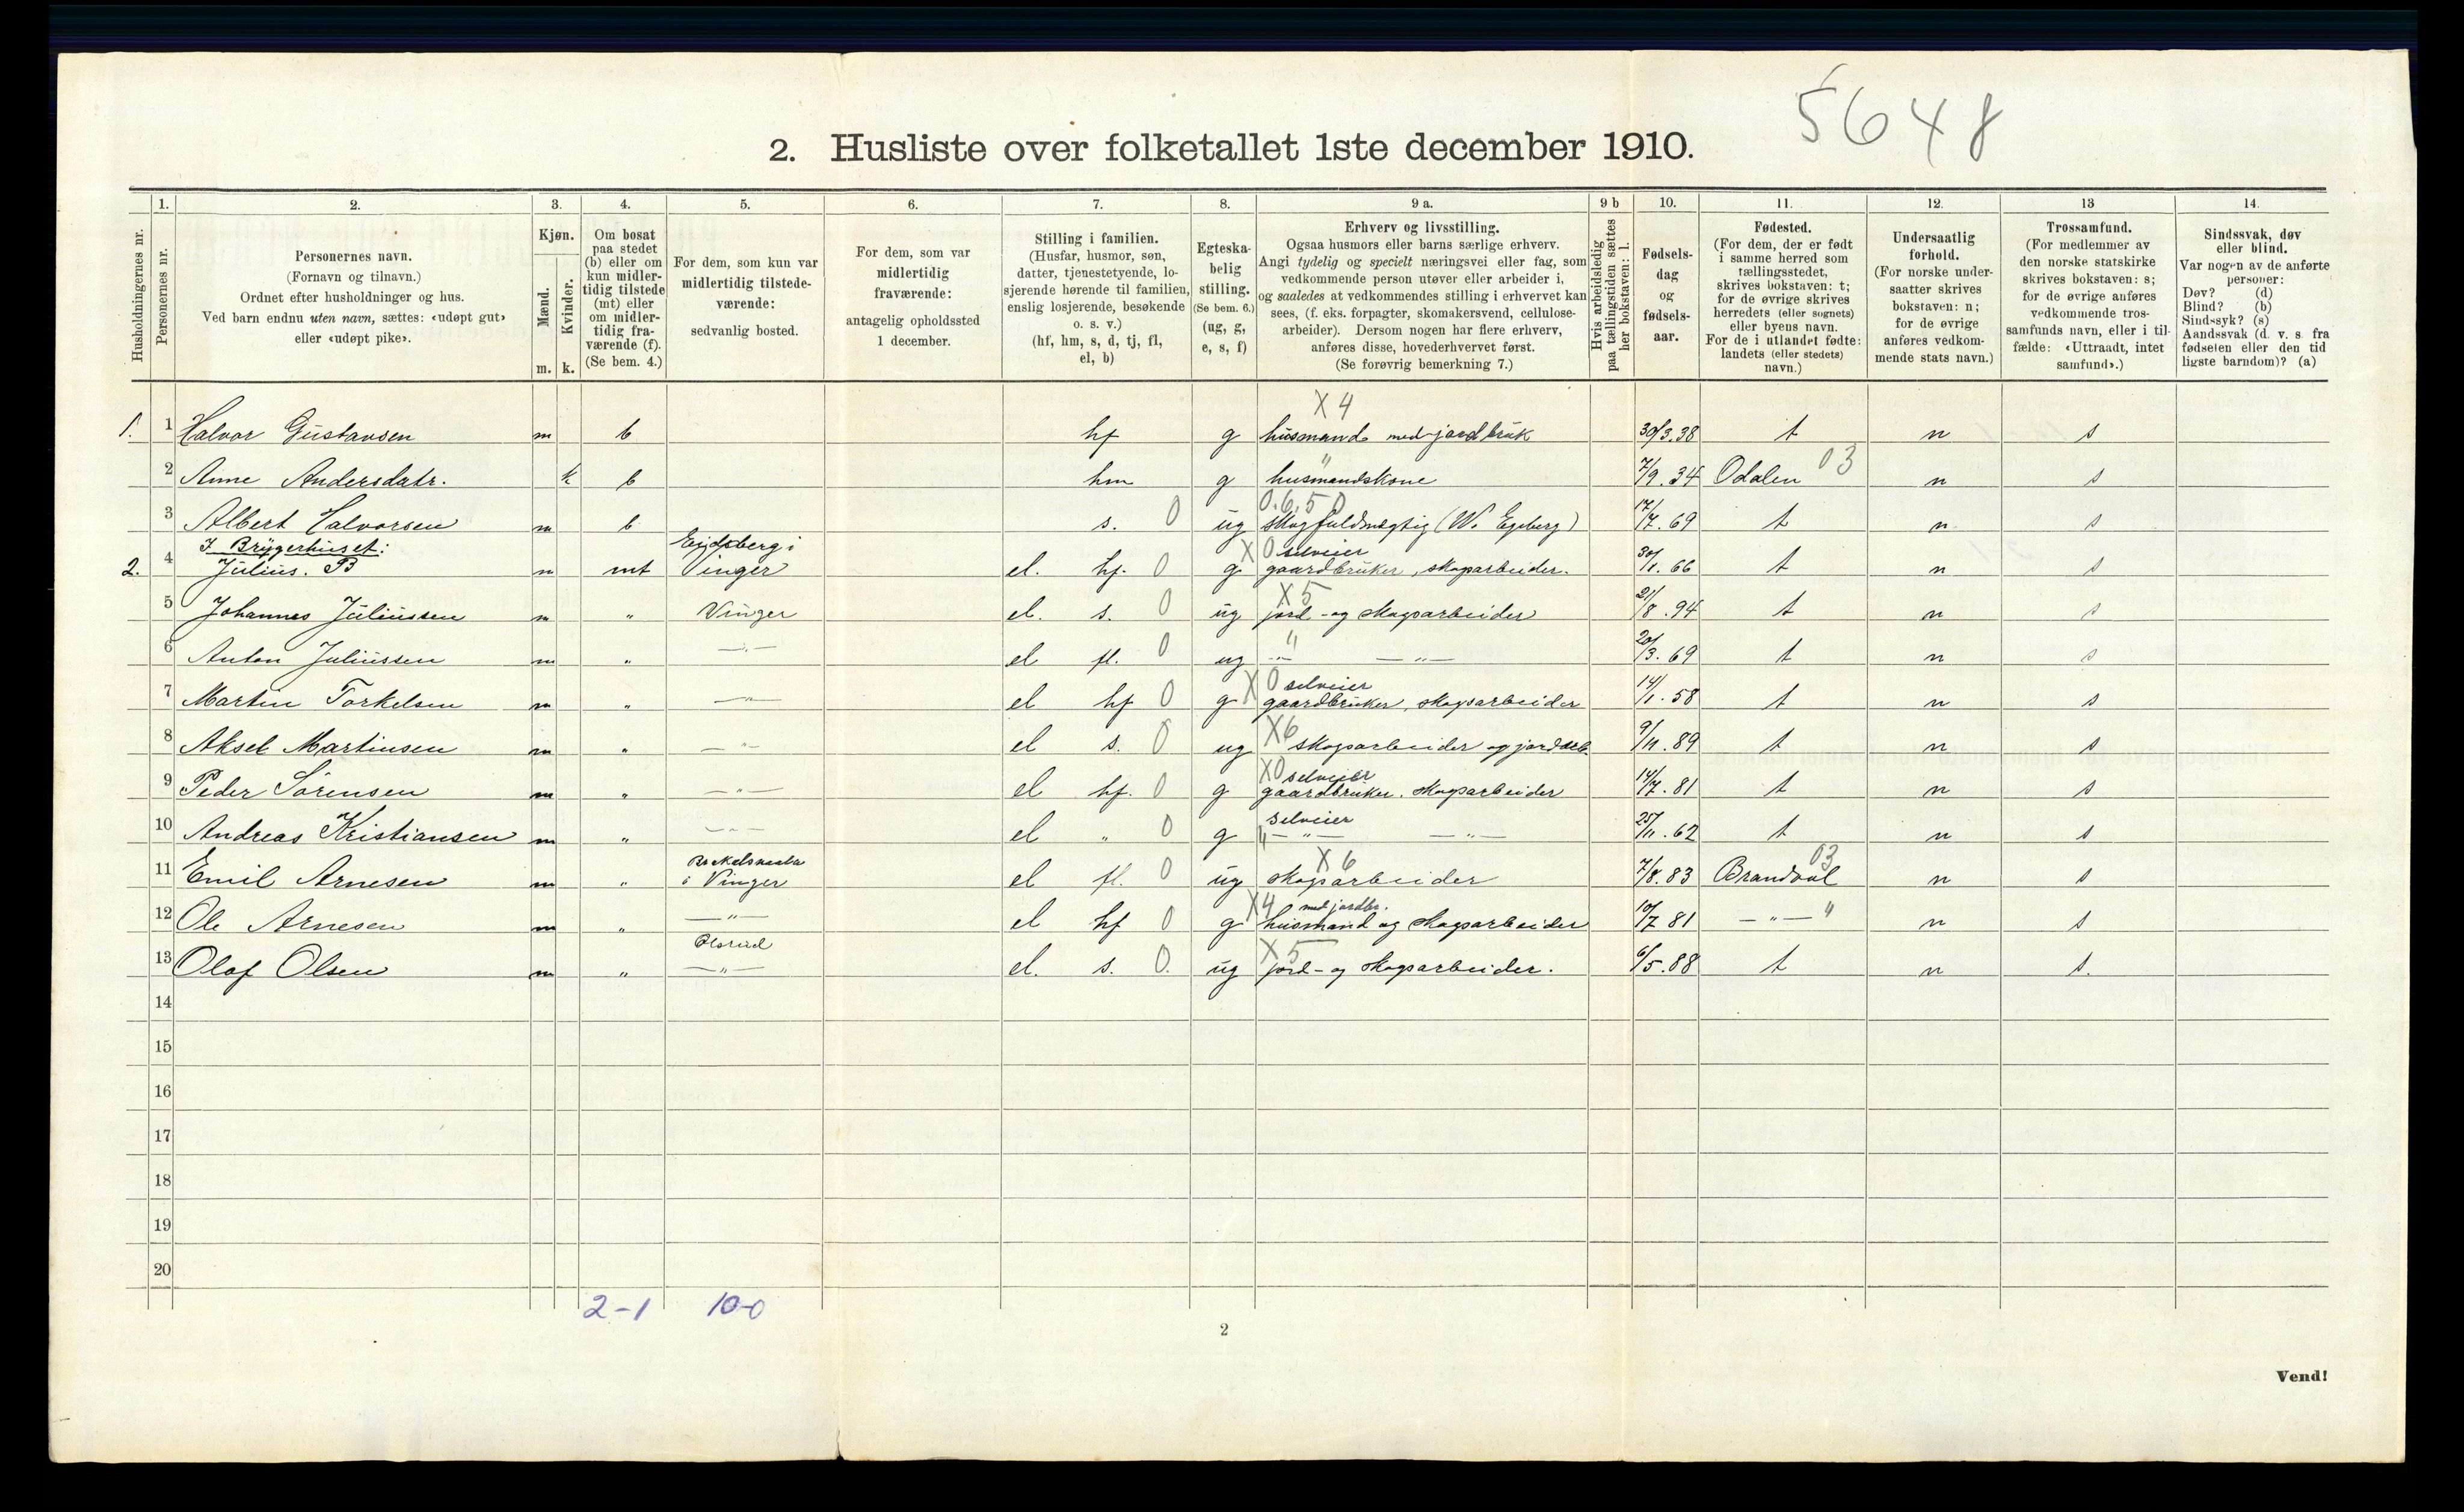 5648
2. Husliste over folketallet 1ste december 1910.
1. 2. 3. 4. 5. 6. 7. 8. 9 a. 9 b 10. 11. 12. 13 14.
Husholdningernes nr.
Personernes nr.
Personernes navn.
(Fornavn og tilnavn.)
Ordnet efter husholdninger og hus.
Ved barn endnu uten navn, sættes: «udøpt gut»
eller «udøpt pike».
Kjøn.
Mænd.
Kvinder.
m. k.
Om bosat
paa stedet
(b) eller om
kun midler-
tidig tilstede
(mt) eller
om midler-
tidig fra-
værende (f).
(Se bem. 4.)
For dem, som kun var
midlertidig tilstede-
værende:
sedvanlig bosted.
For dem, som var
midlertidig
fraværende:
antagelig opholdssted
1 december.
Stilling i familien.
(Husfar, husmor, søn,
datter, tjenestetyende, lo-
sjerende hørende til familien,
enslig losjerende, besøkende
o. s. v.)
(hf, hm, s, d, tj, fl,
el, b)
Egteska-
belig
stilling.
(Se bem. 6.)
(ug, g,
e, s, f)
Erhverv og livsstilling.
Ogsaa husmors eller barns særlige erhverv.
Angi tydelig og specielt næringsvei eller fag, som
vedkommende person utøver eller arbeider i,
og saaledes at vedkommendes stilling i erhvervet kan
sees, (f. eks. forpagter, skomakersvend, cellulose-
arbeider). Dersom nogen har flere erhverv,
anføres disse, hovederhvervet først.
(Se forøvrig bemerkning 7.)
Hvis arbeidsledig
paa tællingstiden sættes
her bokstaven: l.
Fødsels-
dag
og
fødsels-
aar.
Fødested.
(For dem, der er født
i samme herred som
tællingsstedet,
skrives bokstaven: t;
for de øvrige skrives
herredets (eller sognets)
eller byens navn.
For de i utlandet fødte:
landets (eller stedets)
navn.)
Undersaatlig
forhold.
(For norske under-
saatter skrives
bokstaven: n;
for de øvrige
anføres vedkom-
mende stats navn.)
Trossamfund.
(For medlemmer av
den norske statskirke
skrives bokstaven: s;
for de øvrige anføres
vedkommende tros-
samfunds navn, eller i til-
fælde: «Uttraadt, intet
samfund».)
Sindssvak, døv
eller blind.
Var nogen av de anførte
personer:
Døv? (d)
Blind? (b)
Sindssyk? (s)
Aandssvak (d. v. s. fra
fødselen eller den tid
ligste barndom)? (a)
X 4
1. 1 Halvor Gustavsen m b hf g husmand med jordbruk 30/3.38 t n s
2 Anne Andersdatr. k b hm g " husmandskone 7/9.34 Odalen 03 n s
0.6,5 0
3 Albert Halvorsen m b s. 0 ug skogfuldmægtig (W. Egeberg) 17/7.69 t n s
I Bryggerhuset: Eidsberg i X 0 selveier
2. 4 Julius. B m mt Vinger el. hf. 0 g gaardbruker, skogsarbeider. 30/1.66 t n s
X 5
5 Johannes Juliussen m " Vinger el. s. 0 ug jord- og skogsarbeider 21/8.94 t n s
6 Anton Juliussen m " —"— el fl. 0 ug —"— —"— 20/3.69 t n s
X 0 selveier
7 Martin Torkelsen m " —"— el hf 0 g gaardbruker, skogsarbeider 14/1.58 t n s
8 Aksel Martinsen m " —"— el s. 0 ug X6 skogsarbeider og jordarb. 9/11.89 t n s
X0 selveier
9 Peder Sørensen m " —"— el hf. 0 g gaardbruker. skogsarbeider 14/7.81 t n s
selveier
10 Andreas Kristiansen m " —"— el " 0 g " —"— —"— 25/11.62 t n s
X 6 03
11 Emil Arnesen m " i Vinger el fl. 0 ug skogsarbeider 7/8.83 Brandval n s
X4 med jordbr.
12 Ole Arnesen m " —"— el hf 0 g husmand og skogsarbeider 10/7 81 —"— " n s
Olsrud X 5
13 Olaf Olsen m " —"— el. s. 0. ug jord- og skogsarbeider. 6/5.88 t n s.
14
15
16
17
18
19
20
2-1 10-0
2
Vend!